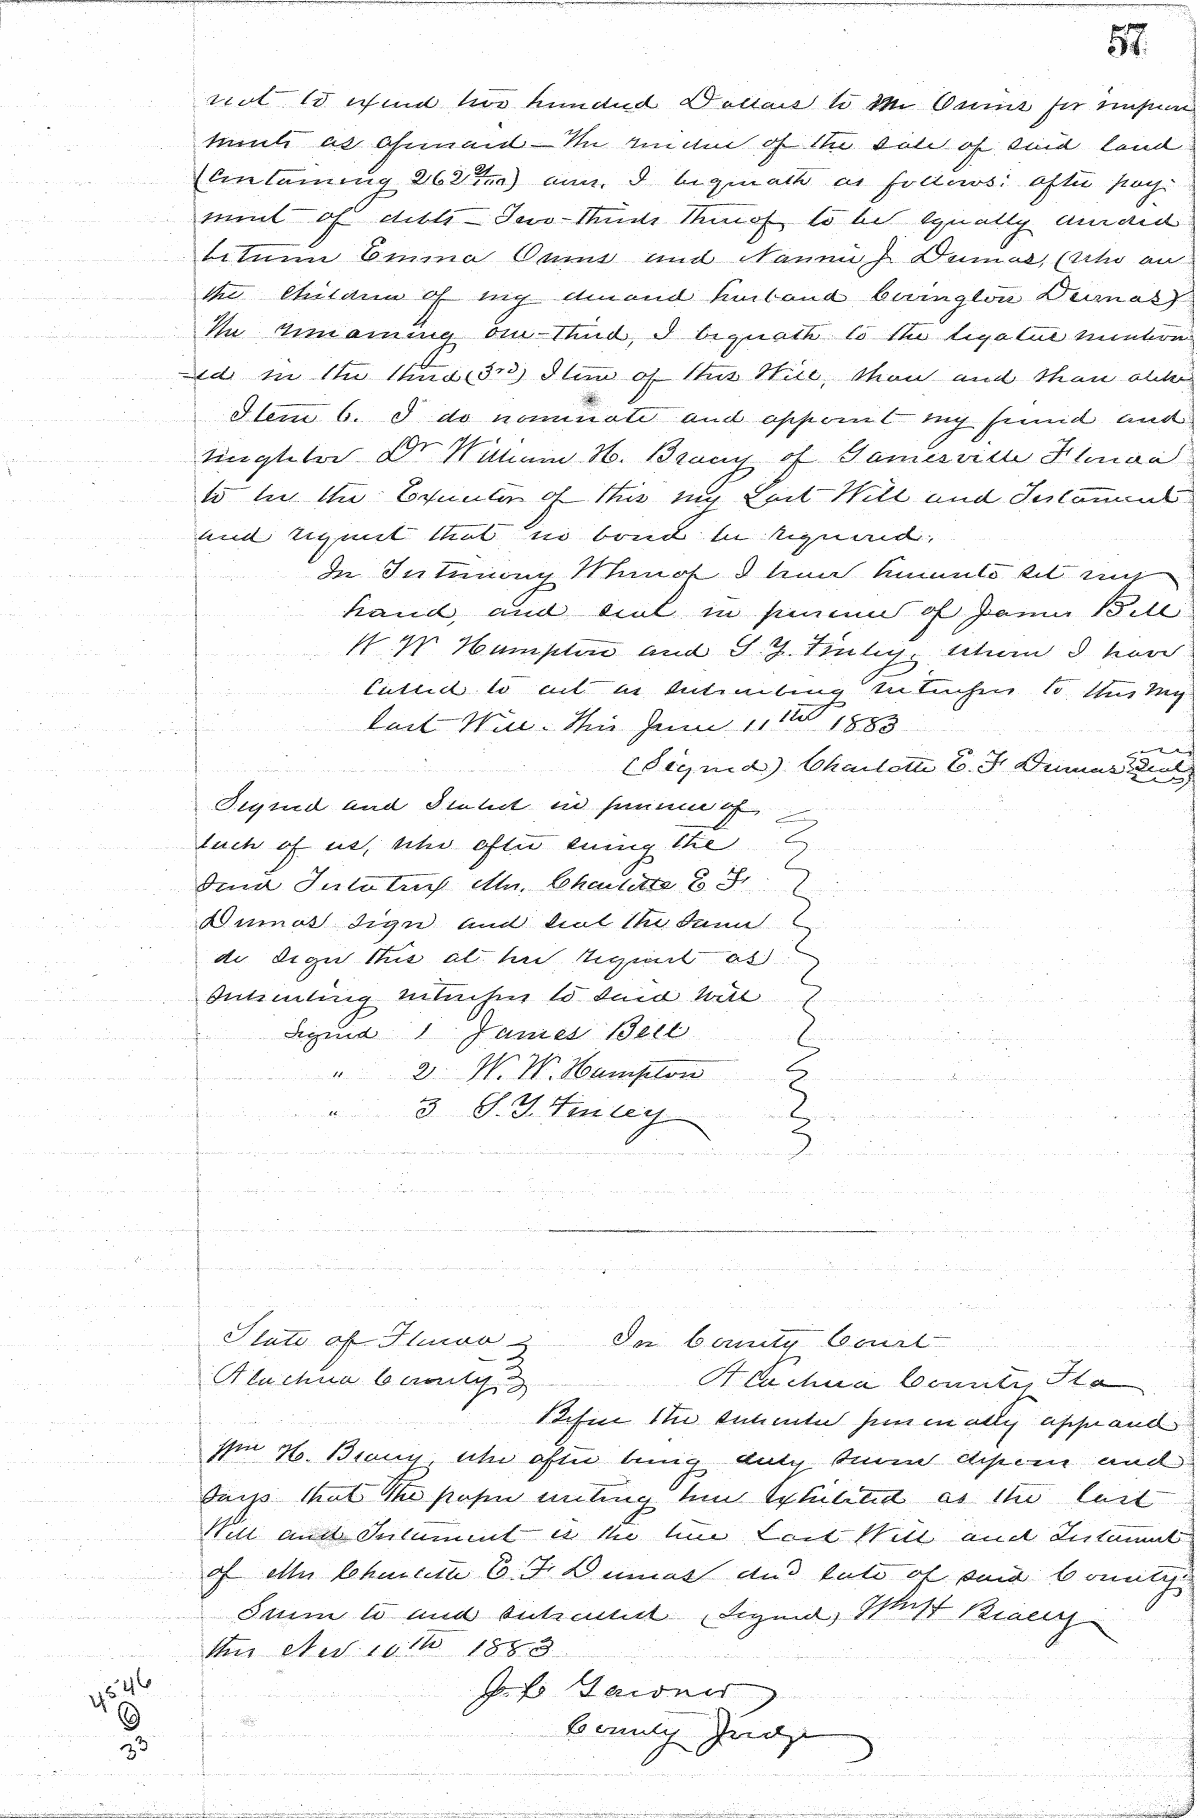 57
not to exceed two hundred Dollars to Mr Owens for improve
ments as aforesaid – The residue of the sale of said land
(Containing 262 /100) acres. I bequeath as follows: after pay-
ment of debts – Two-thirds thereof to be equally divided
between Emma Owens and Nannie J. Dumas, (who are
the children of my deceased husband Covington Dumas)
The remaining one-third, I bequeath to the legatees mention
-ed in the third (3rd) Item of this Will, share and share alike
Item 6. I do nominate and appoint my friend and
neighbor Dr William H. Bracey of Gainesville Florida
to be the Executor of this my Last Will and Testament
and request that no bond be required.
In Testimony Whereof I have hereunto set my
hand, and seal in presence of James Bell
W W Hampton and S. Y. Finley, whom I have
called to act as subscribing witnesses to this my
last Will. this June 11th 1883
(Signed) Charlotte E. F Dumas (Seal)
Signed and Sealed in presence of
each of us, who after seeing the
said Testatrix Mrs. Charlotte E F.
Dumas sign and seal the same
do sign this at her request as
subscribing witnesses to said Will
Signed 1 James Bell
" 2 W. W. Hampton
" 3 S. Y. Finley
State of Florida In County Court
Alachua County Alachua County Fla
Before the subscriber personally appeared
Wm H. Bracey, who after being duly sworn deposes and
says that the paper writing here exhibited as the last
Will and Testament is the true Last Will and Testament
of Mrs Charlotte E. F. Dumas decd late of said County.
Sworn to and subscribed (Signed) Wm H Bracey
this Nov 10th 1883
J. C Gardner
County Judge
4546
6
33